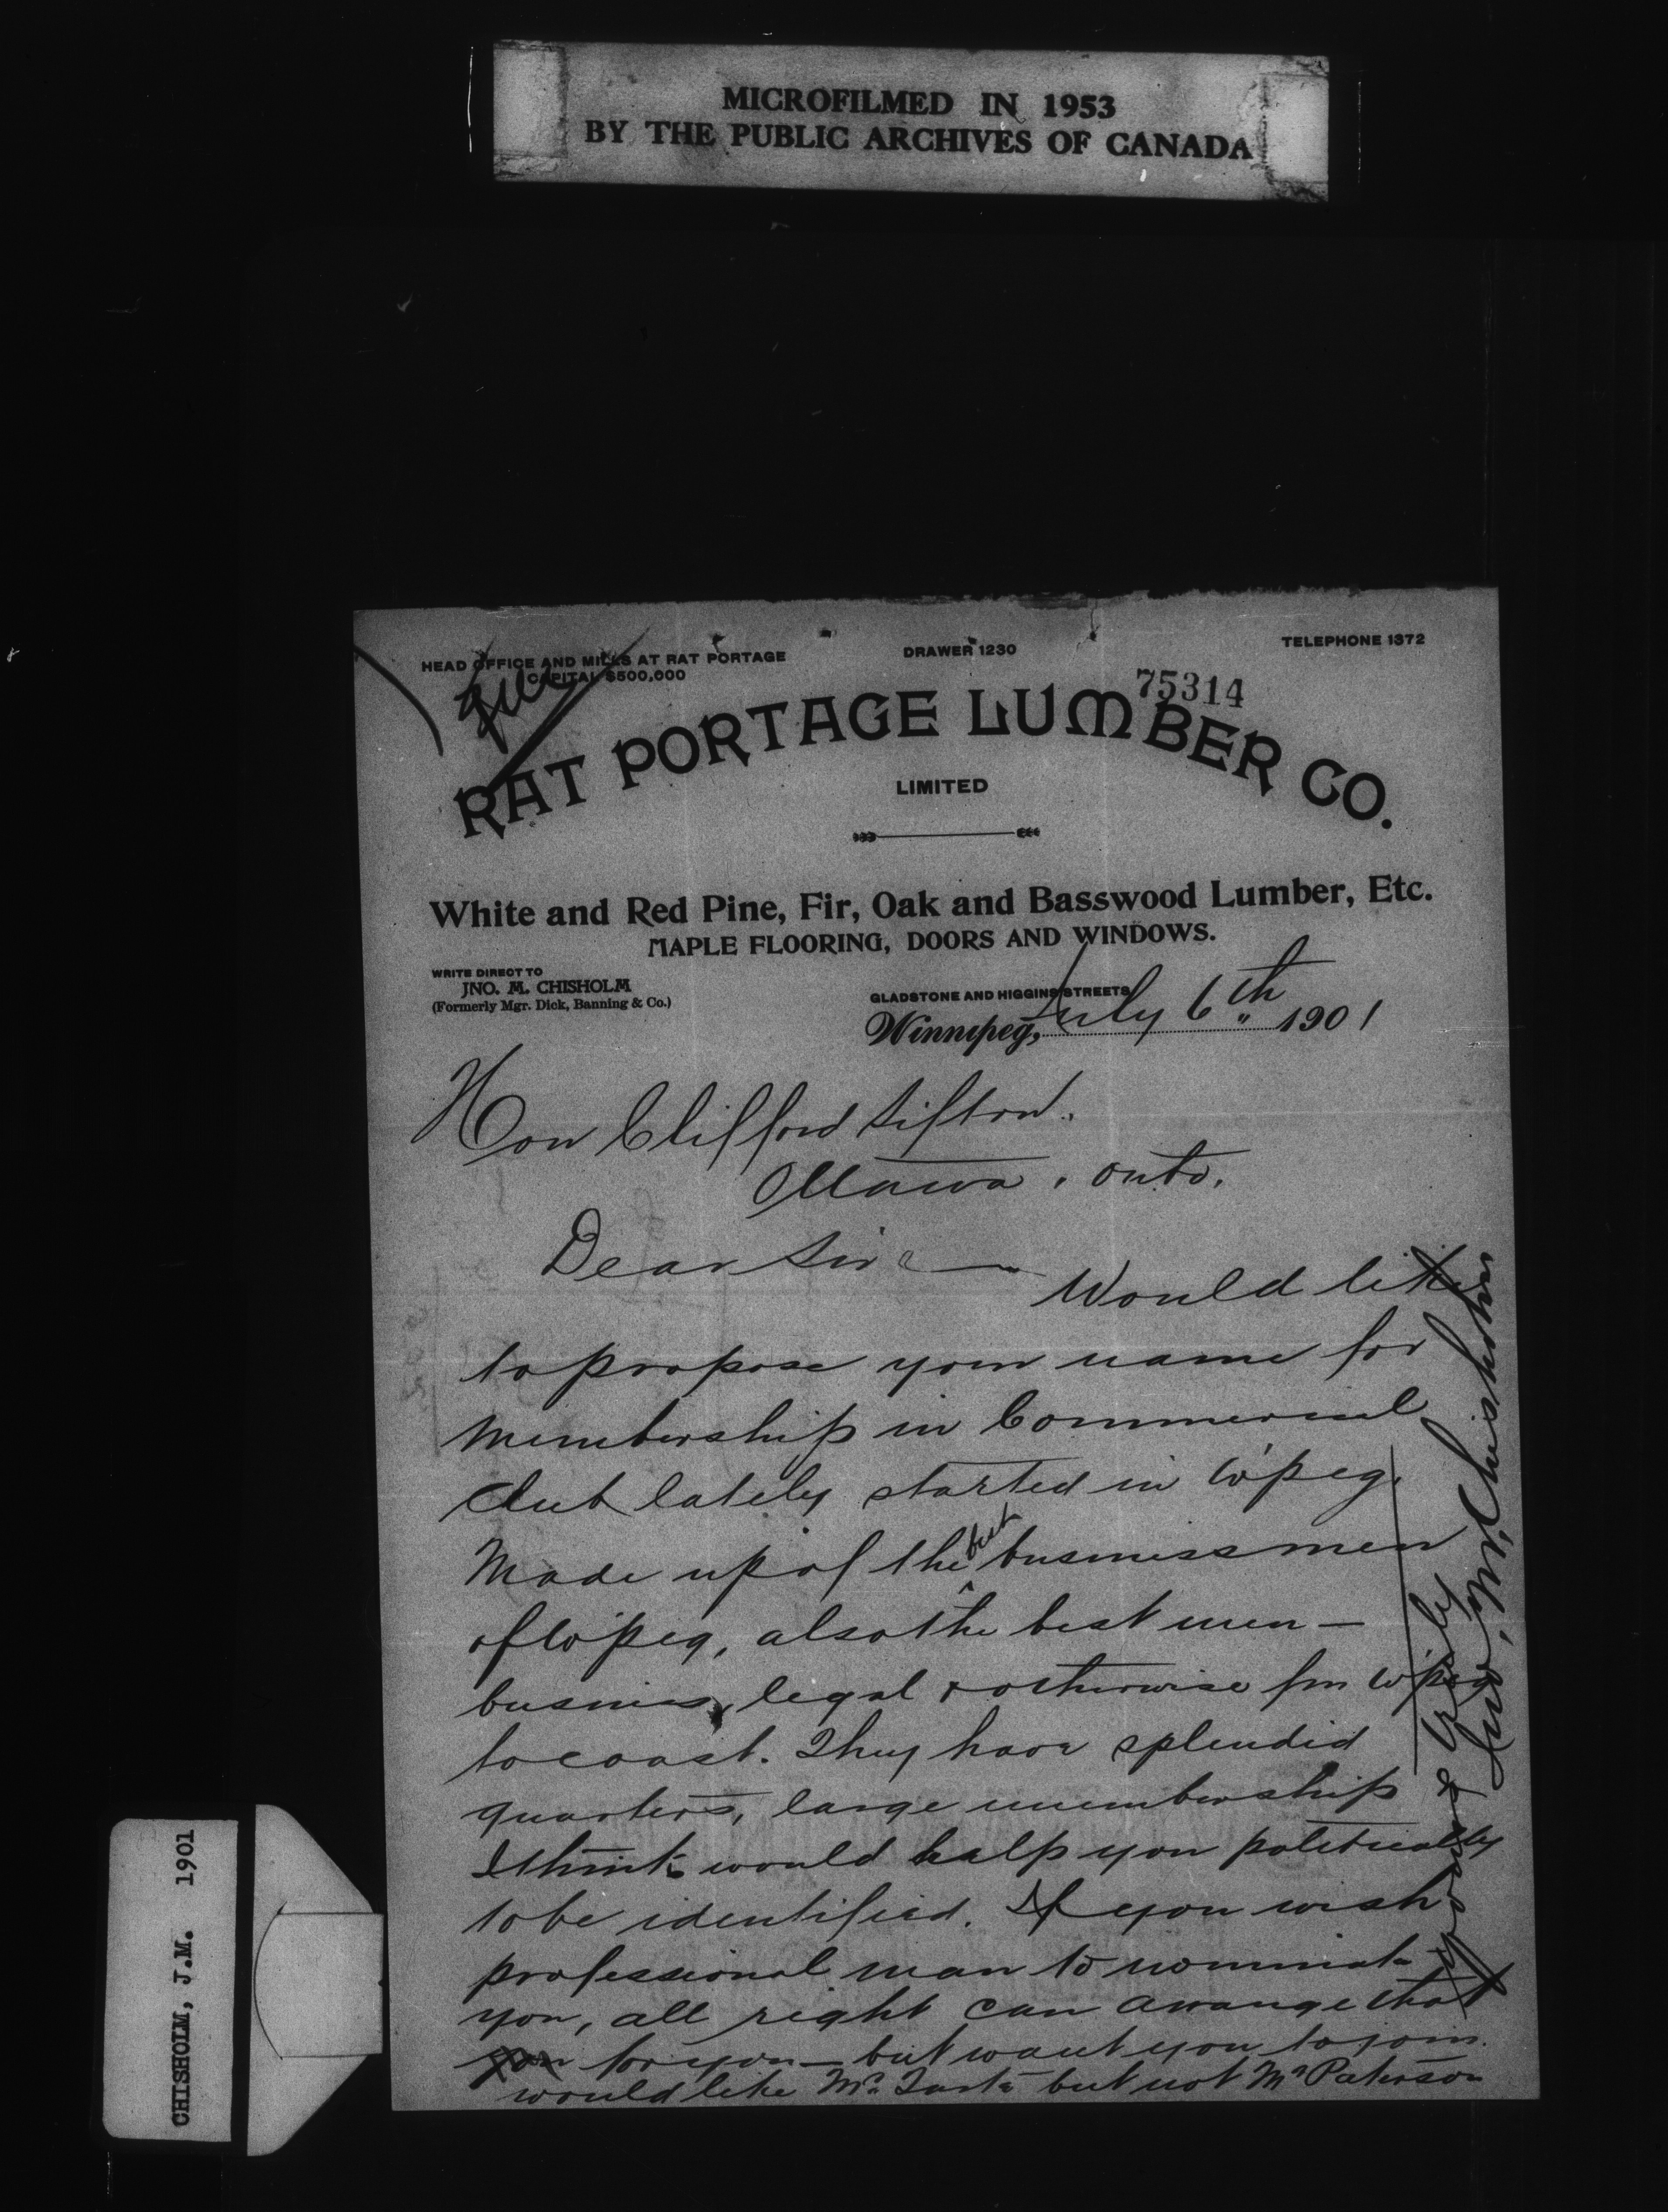 MICROFILMED IN 1953
BY THE PUBLIC ARCHIVES OF CANADA
HEAD OFFICE AND MILLS AT RAT PORTAGE
CAPITAL $500,000
DRAWER 1230
TELEPHONE 1372
75314
file
RAT PORTAGE LUMBER CO.
LIMITED
White and Red Pine, Fir, Oak and Basswood Lumber, Etc.
MAPLE FLOORING, DOORS AND WINDOWS.
WRITE DIRECT TO
JNO. M. CHISHOLM
(Formerly Mgr. Dick, Banning & Co.)
GLADSTONE AND HIGGINS STREETS
Winnipeg, July 6th 1901
Hon Clifford Sifton.
Ottawa, Onto.
Dear Sir
Would like
to propose your name for
membership in Commercial
Club lately started in W'peg.
Made up of the best business men
of W'peg, also the best men —
business, legal & otherwise fm W'peg
to coast. They have splendid
quarters, large membership
I think would help you politically
to be identified. If you wish
professional man to nominate
you, all right can arrange that
you for you — but want you to join.
would like Mr. Tarte but not Mr Paterson
Yours Truly
Jno. M. Chisholm
CHISHOLM, J.M. 1901